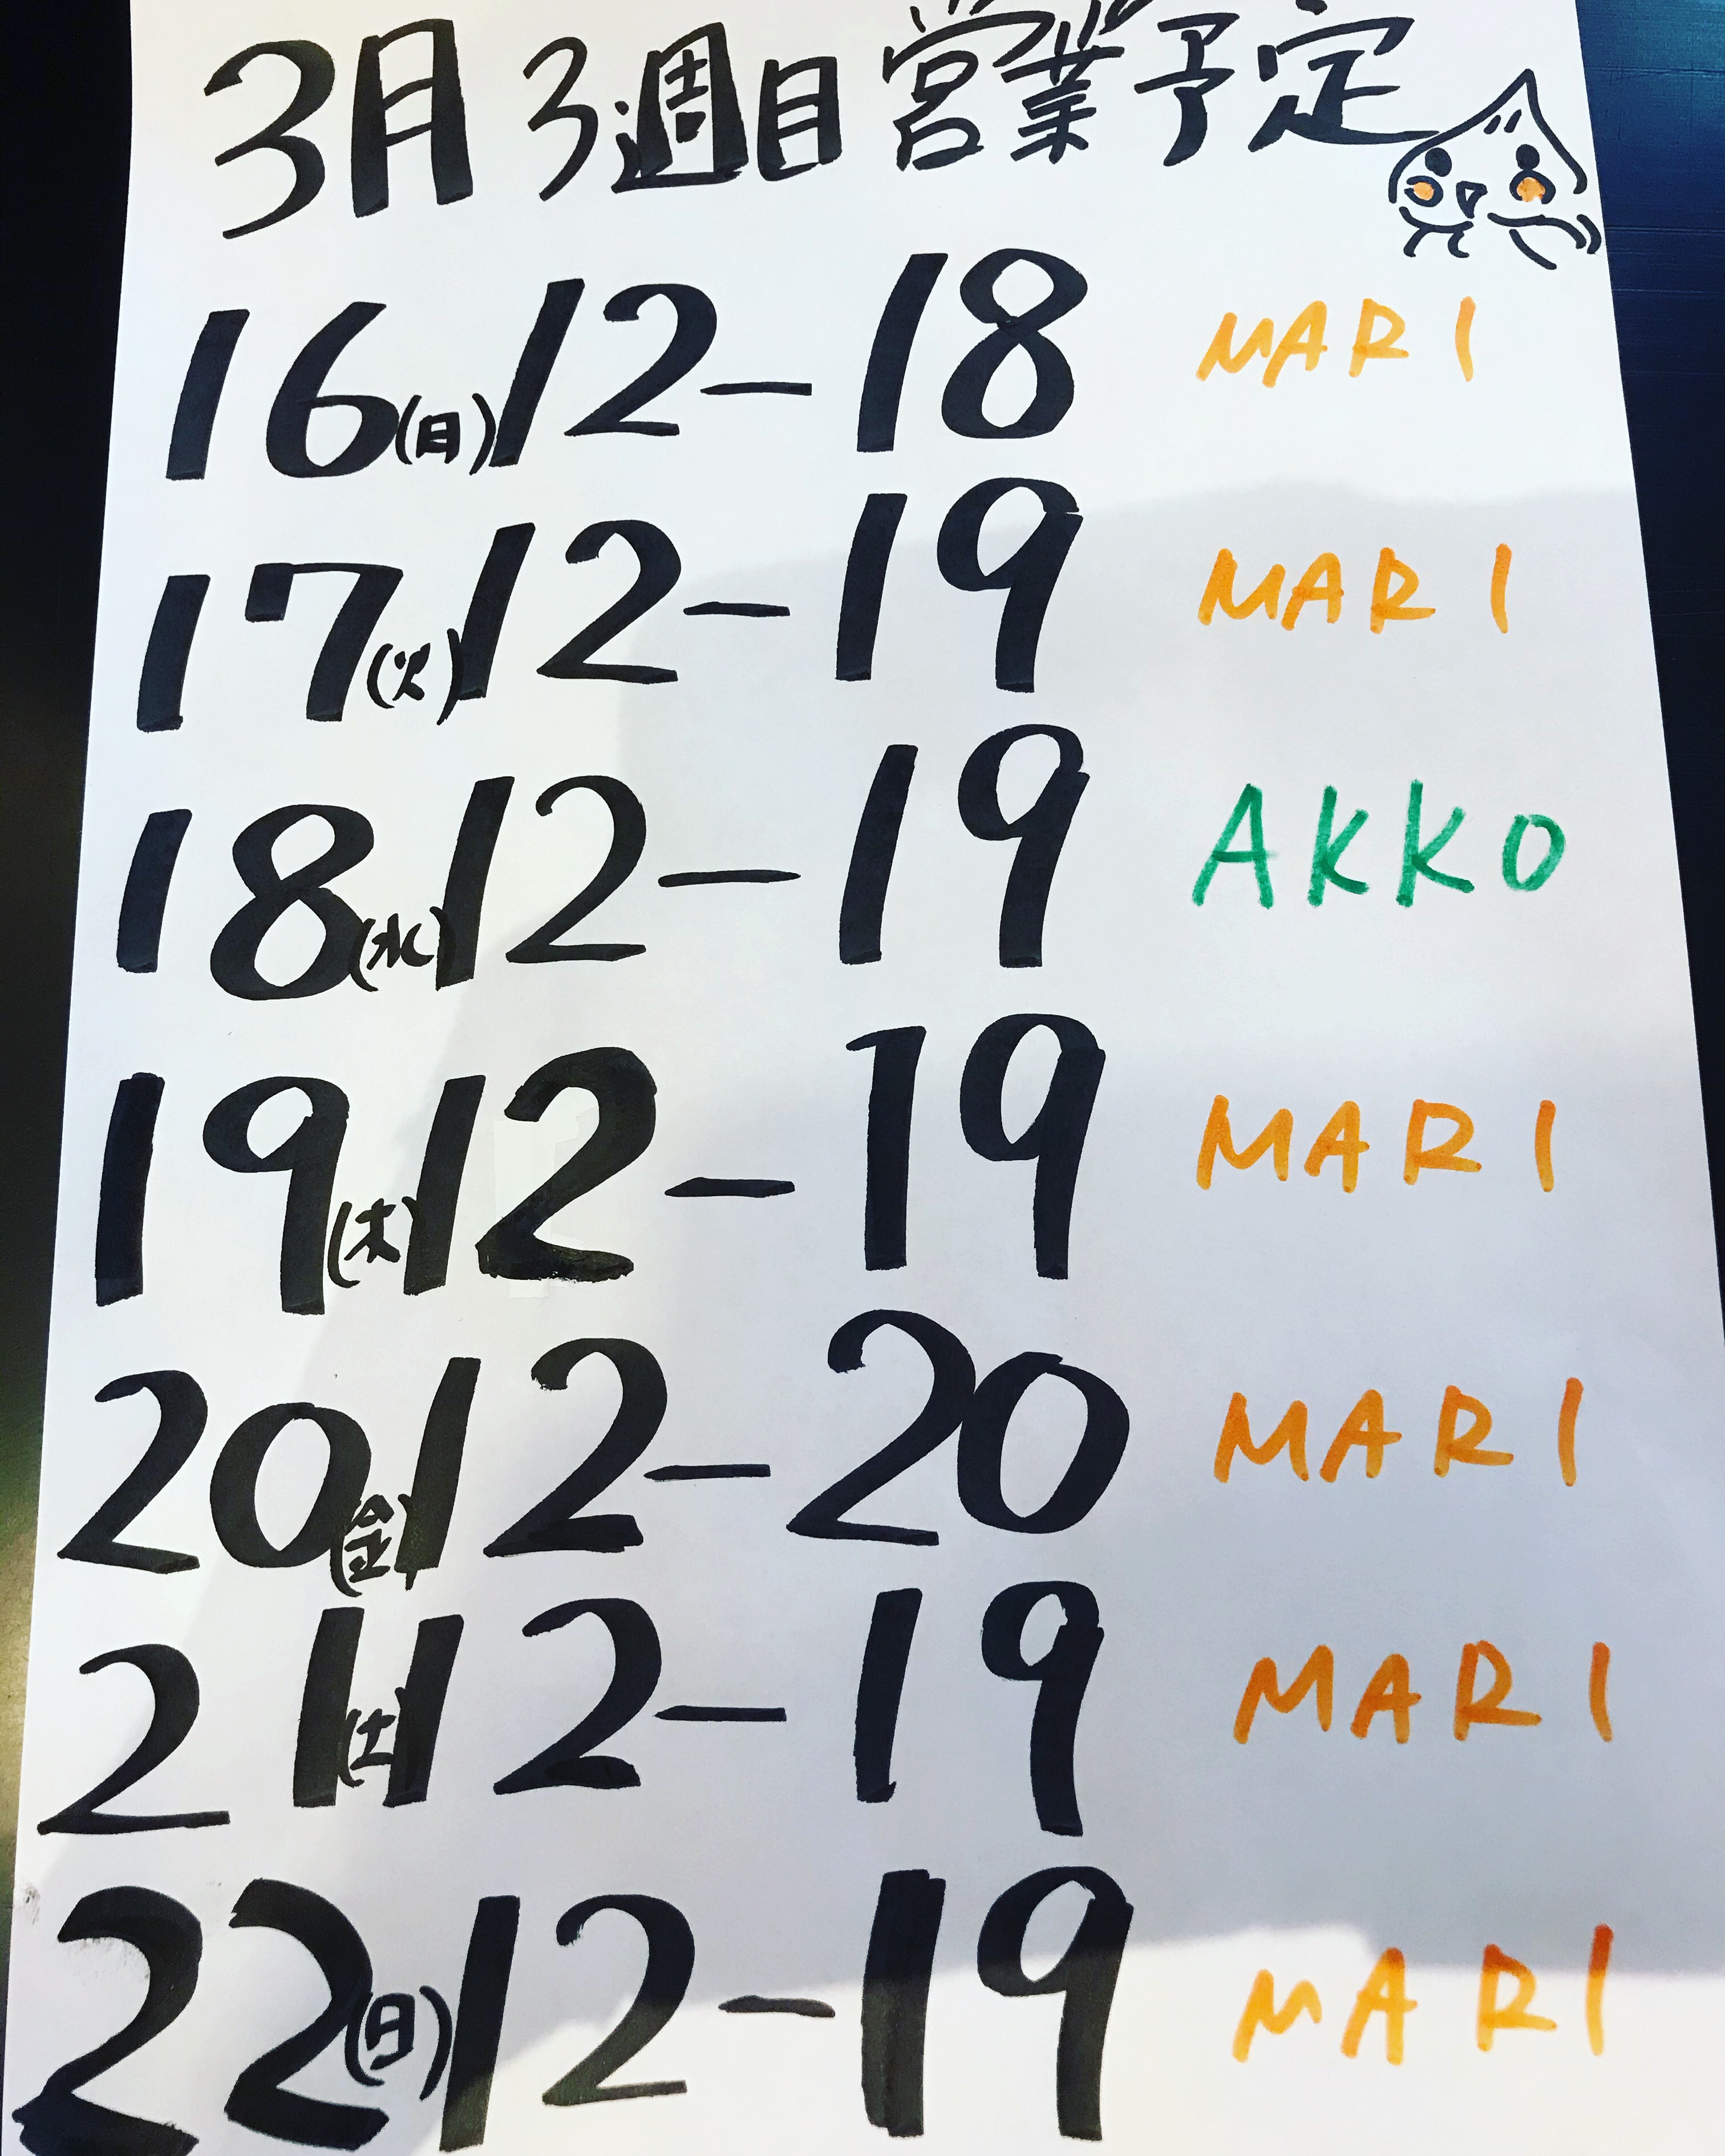 3月3週目営業予定
16(日)12-18 MARI
17(火)12-19 MARI
18(水)12-19 AKKO
19(木)12-19 MARI
20(金)12-20 MARI
21(土)12-19 MARI
22(日)12-19 MARI